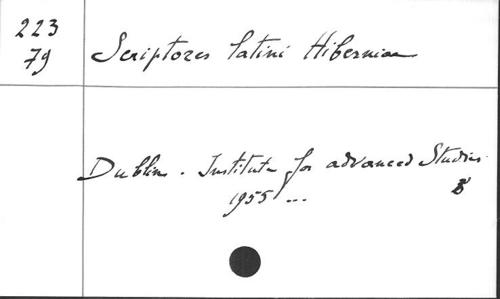 223
79
Scriptores latini Hiberniae
Dublin. Institute for advanced Studies
1955 ...